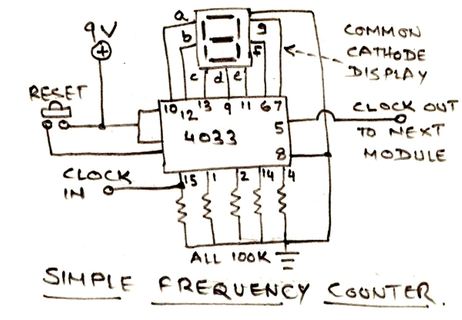 9V
a
b
g
f
COMMON
CATHODE
DISPLAY
c d e
RESET
10 12 13 9 11 6 7
4033
5
8
CLOCK OUT
TO NEXT
MODULE
CLOCK
IN
15 1 2 14 4
ALL 100K
SIMPLE FREQUENCY COUNTER.